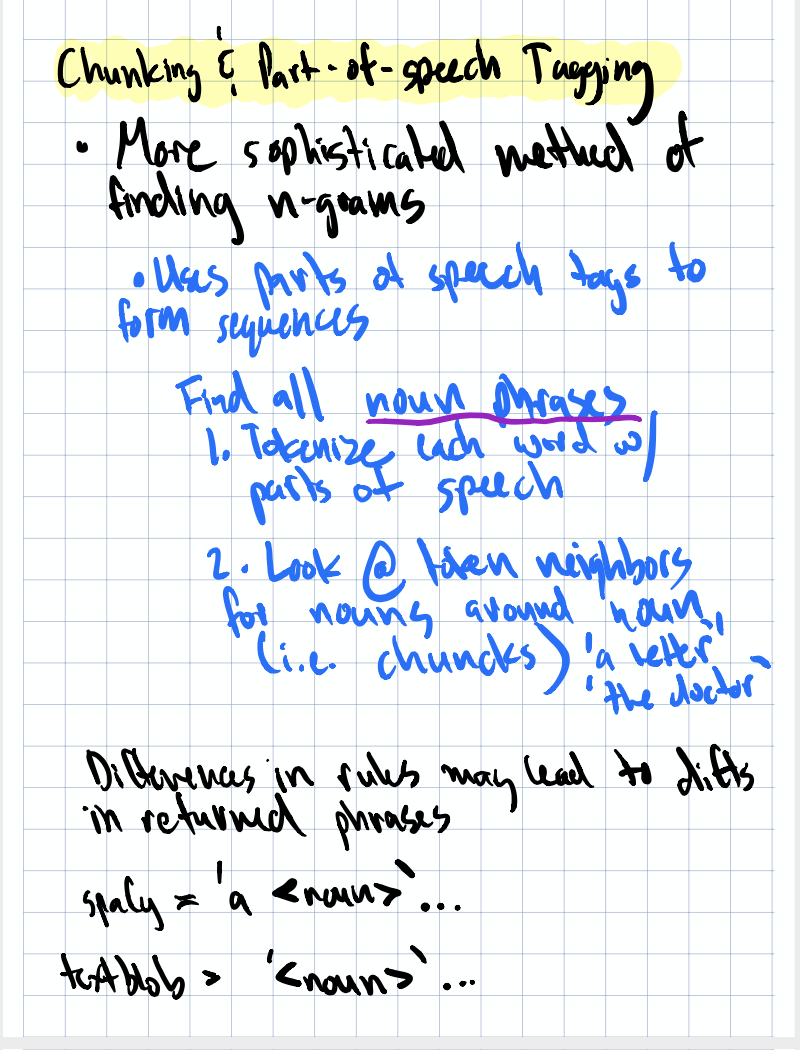 Chunking & Part-of-speech Tagging
• More sophisticated method of
finding n-grams
• Uses parts of speech tags to
form sequences
Find all noun phrases
1. Tokenize each word w/
parts of speech
2. Look @ token neighbors
for nouns around noun
(i.e. chuncks) 'a letter'
'the doctor'
Differences in rules may lead to diffs
in returned phrases
spaCy = 'a <noun>'...
textblob > '<noun>'...